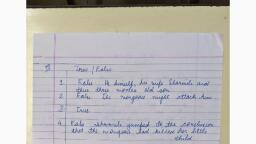 True / False
1 False
his wife Sharmila and
three months old son
2 False The mongoose might attack him
3 True
4 False Sharmila jumped to the conclusion
that the mongoose had killed her little
child